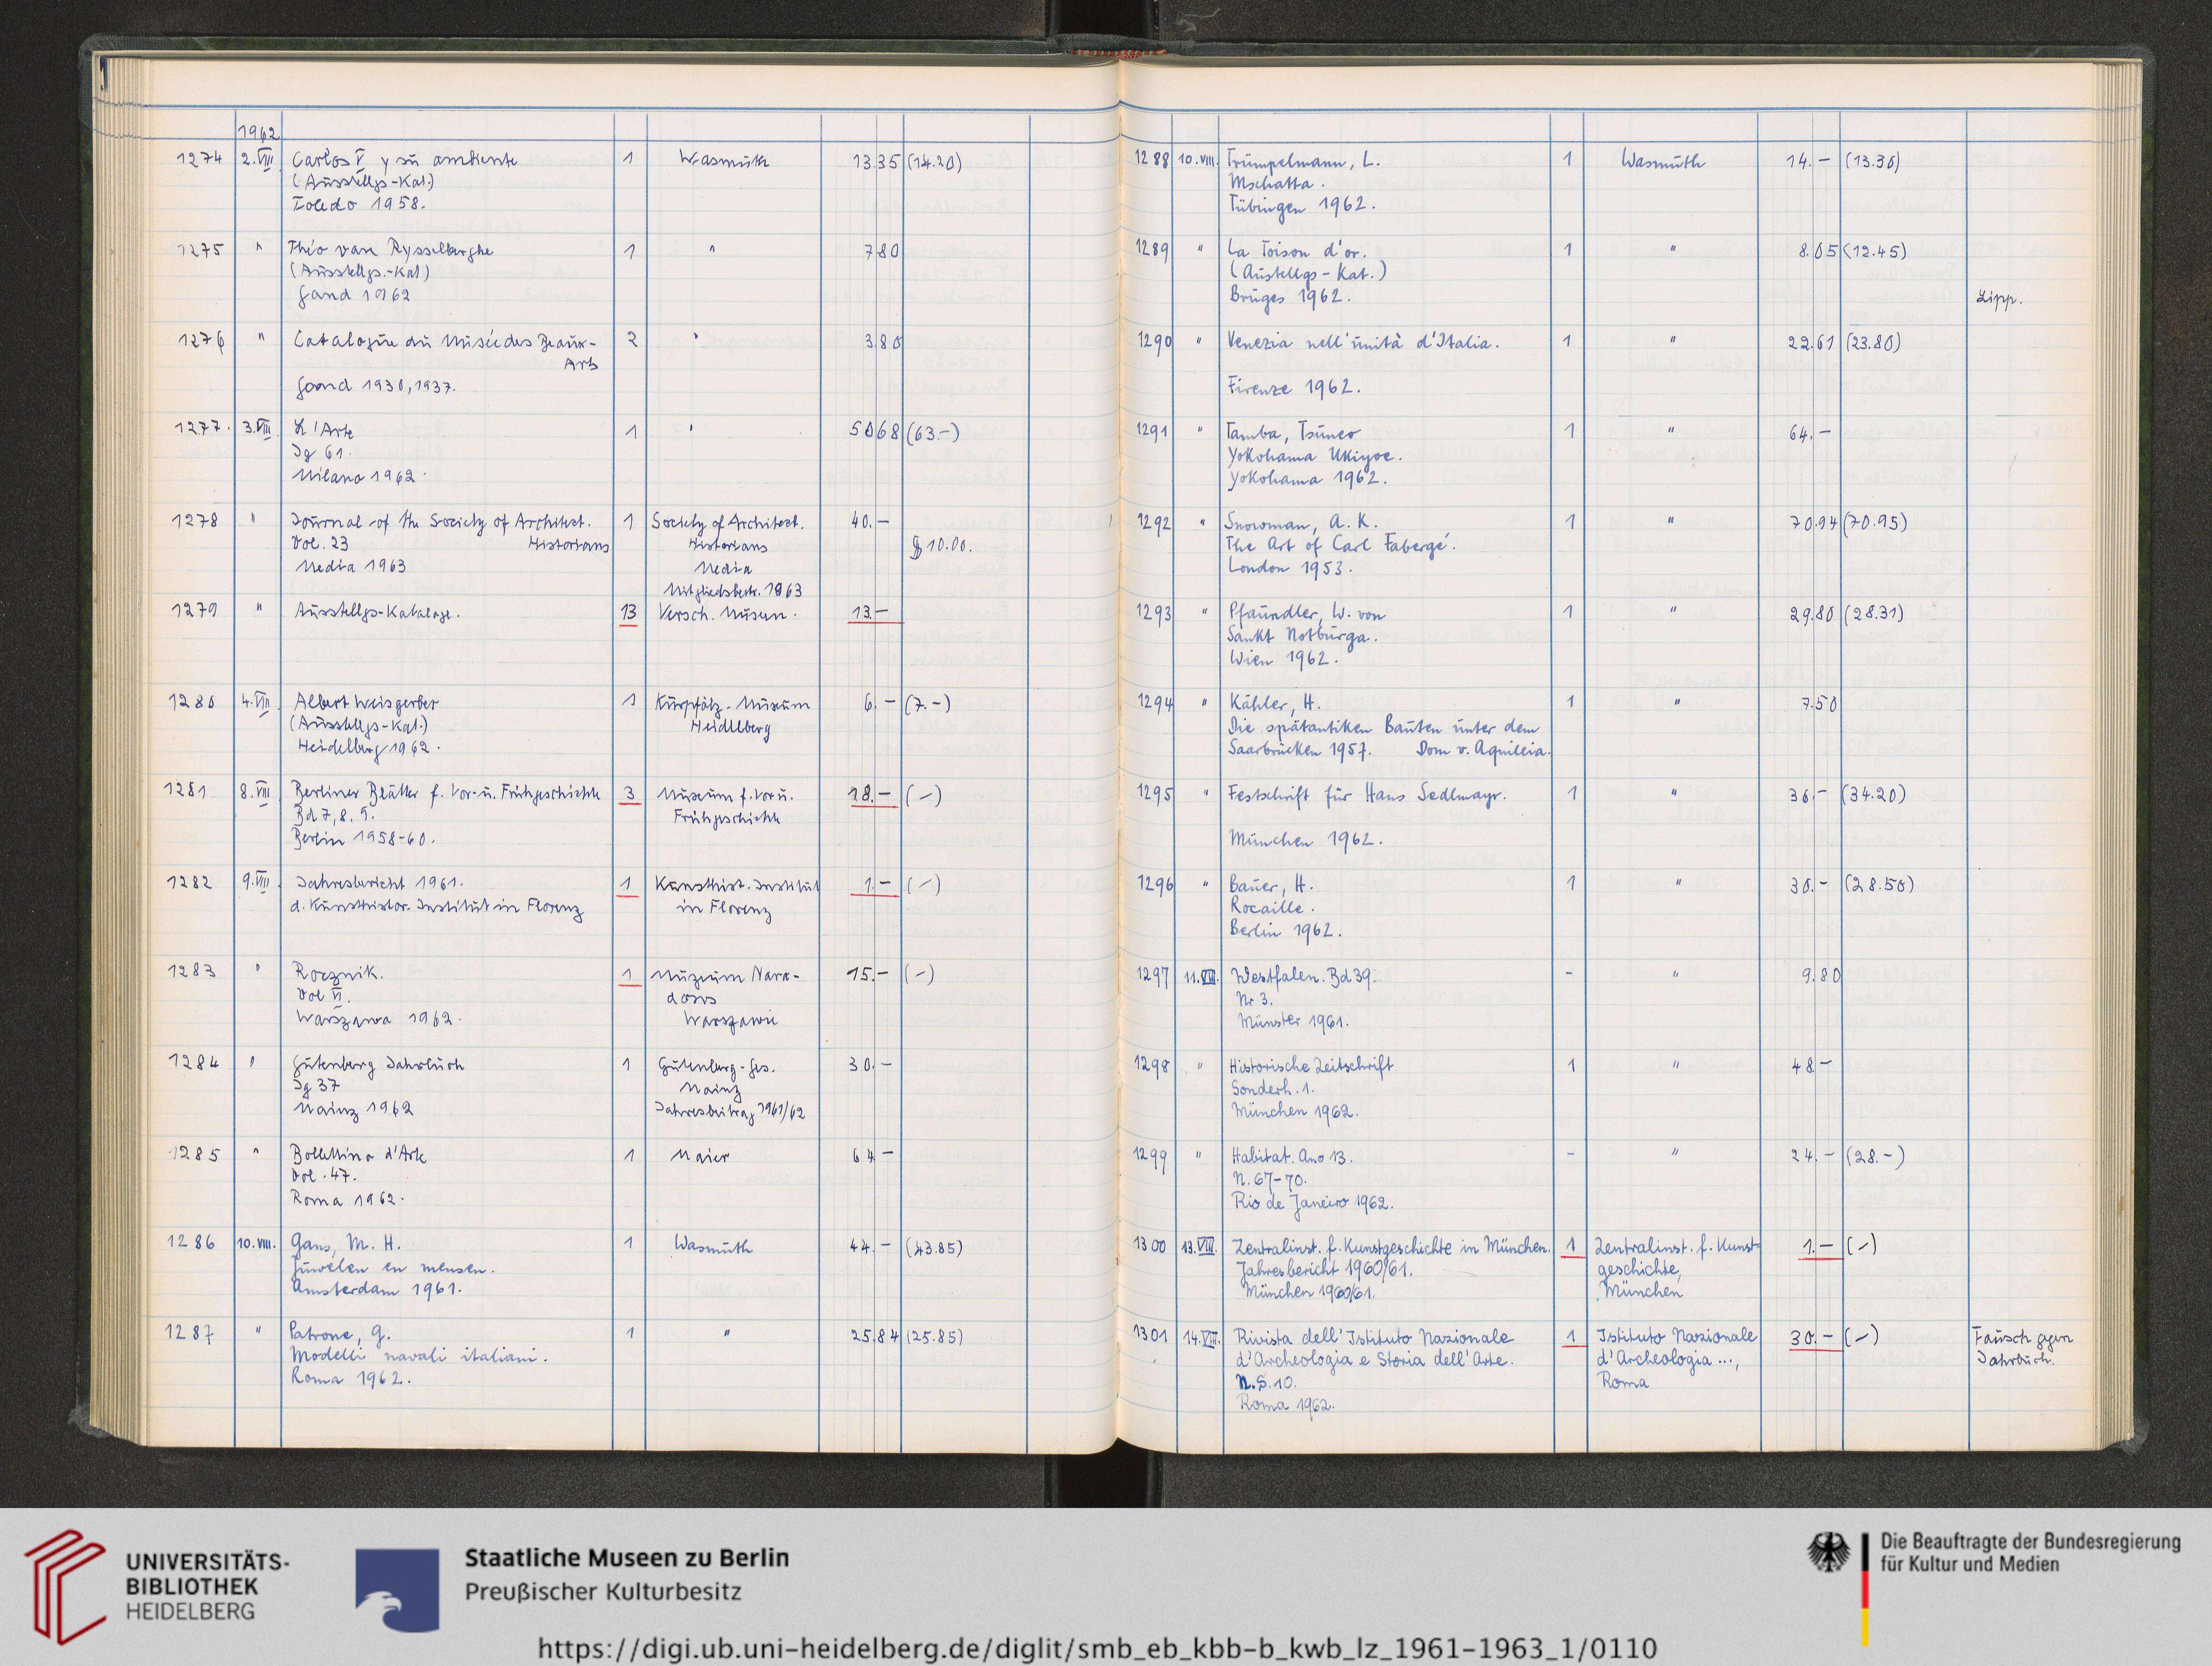 1962
1274 2.VIII Carlos V y su ambiente 1 Wasmuth 13.35 (14.20)
(Ausstellgs-Kat.)
Toledo 1958.
1275 " Théo van Rysselberghe 1 " 7.80
(Ausstellgs.-Kat)
Gand 1962
1276 " Catalogue du Musée des Beaux- 2 " 3.80
Arts
Gand 1930, 1937.
1277. 3.VIII L'Arte 1 " 50.68 (63.-)
Jg 61.
Milano 1962.
1278 " Journal of the Society of Architect. 1 Society of Architect. 40.-
Vol. 23 Historians Historians $ 10.00.
Media 1963 Media
Mitgliedsbeitr. 1963
1279 " Ausstellgs-Kataloge. 13 Versch. Museen. 13.-
1280 4.VIII. Albert Weisgerber 1 Kurpfälz. Museum 6.- (7.-)
(Ausstellgs-Kat.) Heidelberg
Heidelberg 1962.
1281 8.VIII Berliner Blätter f. Vor- u. Frühgeschichte 3 Museum f. Vor u. 18.- (-)
Bd 7, 8, 9. Frühgeschichte
Berlin 1958-60.
1282 9.VIII. Jahresbericht 1961. 1 Kunsthist. Institut 1.- (-)
d. Kunsthistor. Institut in Florenz in Florenz
1283 " Rocznik. 1 Muzeum Naro- 15.- (-)
Vol VI. dowe
Warszawa 1962. Warszawie
1284 " Gutenberg Jahrbuch 1 Gutenberg-Ges. 30.-
Jg 37 Mainz
Mainz 1962 Jahresbeitrag 1961/62
1285 " Bollettino d'Arte 1 Maier 64.-
Vol. 47.
Roma 1962.
1286 10.VIII. Gans, M. H. 1 Wasmuth 44.- (43.85)
Juwelen en mensen.
Amsterdam 1961.
1287 " Patrone, G. 1 " 25.84 (25.85)
Modelli navali italiani.
Roma 1962.
1288 10.VIII. Trümpelmann, L. 1 Wasmuth 14.- (13.30)
Mschatta.
Tübingen 1962.
1289 " La Toison d'or. 1 " 8.05 (12.45)
(Austellgs-Kat.)
Bruges 1962. Lipp.
1290 " Venezia nell'unità d'Italia. 1 " 22.61 (23.80)
Firenze 1962.
1291 " Tamba, Tsuneo 1 " 64.-
Yokohama Ukiyoe.
Yokohama 1962.
1292 " Snowman, A. K. 1 " 70.94 (70.95)
The Art of Carl Fabergé.
London 1953.
1293 " Pfaundler, W. von 1 " 29.80 (28.31)
Sankt Notburga.
Wien 1962.
1294 " Kähler, H. 1 " 7.50
Die spätantiken Bauten unter dem
Saarbrücken 1957. Dom v. Aquileia.
1295 " Festschrift für Hans Sedlmayr. 1 " 36.- (34.20)
München 1962.
1296 " Bauer, H. 1 " 30.- (28.50)
Rocaille.
Berlin 1962.
1297 11.VIII. Westfalen. Bd 39. - " 9.80
Nr 3.
Münster 1961.
1298 " Historische Zeitschrift 1 " 48.-
Sonderh. 1.
München 1962.
1299 " Habitat. Ano 13. - " 24.- (28.-)
N. 67-70.
Rio de Janeiro 1962.
1300 13.VIII. Zentralinst. f. Kunstgeschichte in München. 1 Zentralinst. f. Kunst- 1.- (-)
Jahresbericht 1960/61. geschichte,
München 1960/61. München
1301 14.VIII. Rivista dell'Istituto Nazionale 1 Istituto Nazionale 30.- (-) Tausch gegen
d'Archeologia e Storia dell'Arte. d'Archeologia ..., Jahrbuch.
N.S. 10. Roma
Roma 1962.
UNIVERSITÄTS-
BIBLIOTHEK
HEIDELBERG
Staatliche Museen zu Berlin
Preußischer Kulturbesitz
Die Beauftragte der Bundesregierung
für Kultur und Medien
https://digi.ub.uni-heidelberg.de/diglit/smb_eb_kbb-b_kwb_lz_1961-1963_1/0110